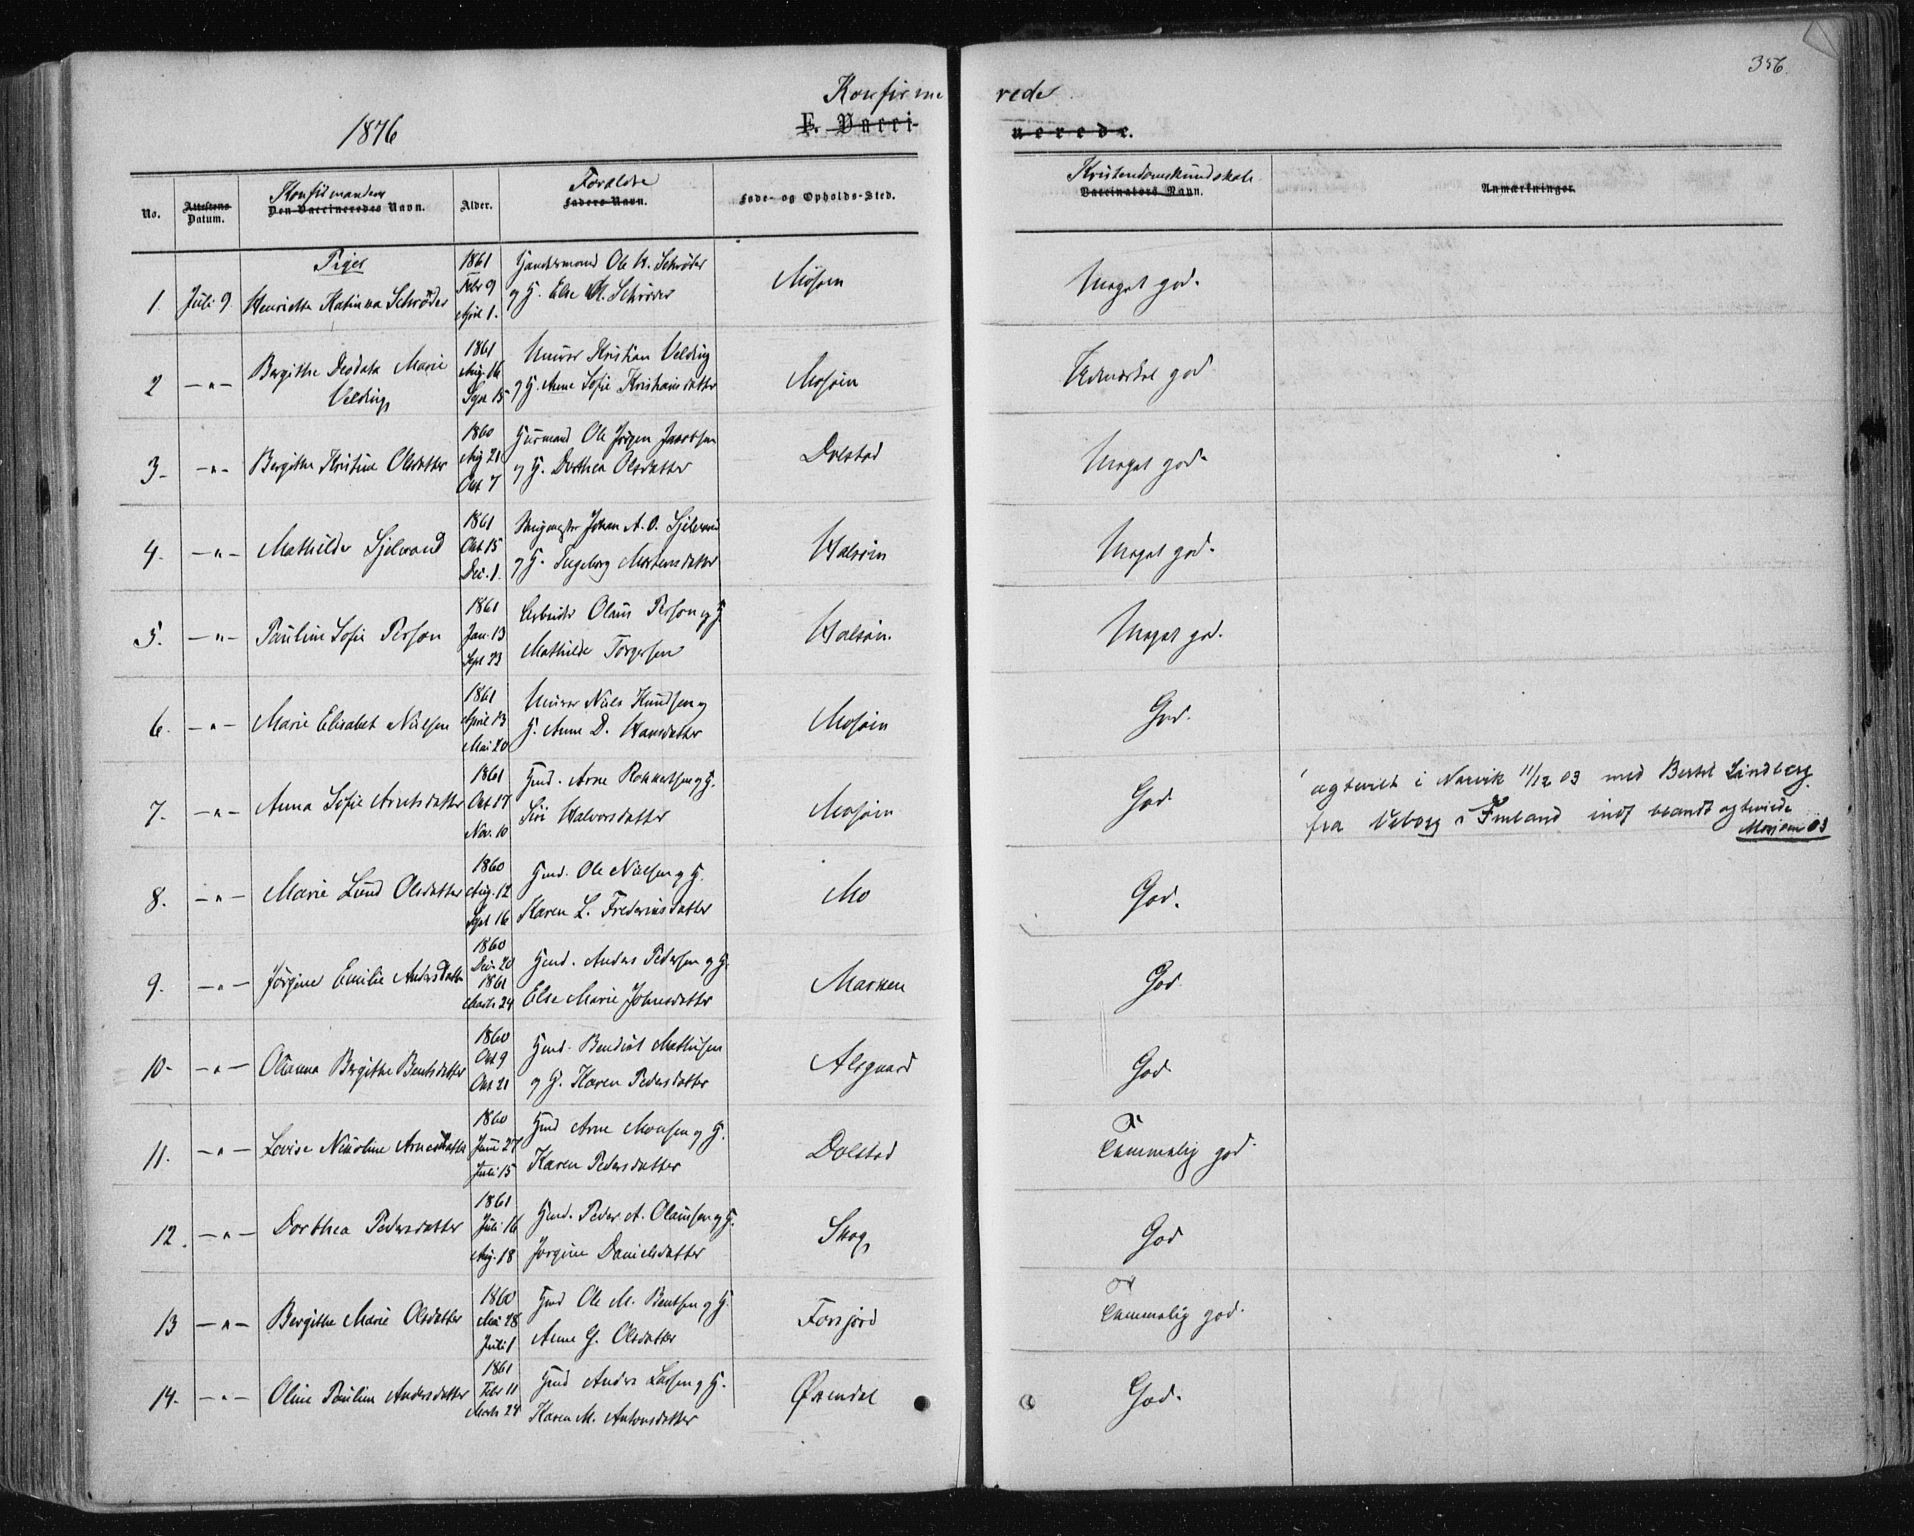 356.
Konfirmerede
1876
F. Vaccinerede.
No.
Attestens Datum.
Konfirmandens
Den Vaccineredes Navn.
Alder.
Forældre
Faders Navn.
Føde- og Opholds-Sted.
Kristendomskundskab
Vaccinators Navn.
Anmærkninger.
Piger
1. Juli 9. Henriette Katinka Schrøder
1861 Febr 9 April 1.
Handelsmand Ole H. Schrøder
og H. Else M. Schrøder
Mosjøen
Meget god.
2 —"— Bergithe Deodata Marie
Velding
1861 Aug. 16 Sept 15
Murer Kristian Velding
og H. Anne Sofie Kristiansdatter
Mosjøen
Udmærket god
3. —"— Bergithe Kristine Olsdatter
1860 Aug 21 Okt 7
Husmand Ole Jørgen Jacobsen
og H. Dorthea Olsdatter
Dolstad
Meget god.
4. —"— Mathilde Sjelvand
1861 Okt 15 Dec. 1.
Johan A. O.
og H. Ingeborg Mortensdatter
Halsøen
Meget god.
5. —"— Pauline Sofie Person
1861 Jan. 13 Sept 23
Arbeider Olaus Person og H.
Mathilde Torgersen
Halsøen.
Meget god.
6. —"— Marie Elisabet Nielsen
1861 April 13 Mai 20
Murer Niels Knudsen og
H. Anne D. Hansdatter
Mosjøen
God.
7. —"— Anna Sofie Arntsdatter
1861 Okt 17 Nov. 10
Hmd. Arne og H.
Siri Halvorsdatter
Mosjøen
God
ægteviet i Narvik 11/12 03 med Bertel Lindberg
fra Viborg i Finland indf blandt ægteviede
Mosjøen 03
8. —"— Marie Lund Olsdatter
1860 Aug. 12 Sept 16
Hmd. Ole Nielsen og H.
Karen L. Frederiksdatter
Mo
God.
9. —"— Jørgine Emilie Andersdatter
1860 Dec. 20 1861 Marts 24
Hmd. Anders Pedersen og H.
Else Marie Johnsdatter
Marken
God
10. —"— Bergithe Bentsdatter
1860 Okt 9 Okt 21
Hmd. Bendikt Mathisen
og H. Karen Pedersdatter
Alsgaard
God
11. —"— Lovise Nikoline Arnesdatter
1860 Juni 27 Juli 15
Hmd Arne Monsen og H.
Karen Pedersdatter
Dolstad
Temmelig god.
12. —"— Dorthea Pedersdatter
1861 Juli 16 Aug. 18
Hmd. Peder A. Olaussen og H.
Jørgine Danielsdatter
Skog
God
13 —"— Bergithe Marie Olsdatter
1860 Mai 28 Juli 1
Hmd Ole M. Bentsen og H.
Anne G. Olsdatter
Forsjord
Temmelig god.
14. —"— Oline Pauline Andersdatter
1861 Febr 11 Marts 24
Hmd Anders Larsen og H.
Karen M. Antonsdatter
Øxendal
God.